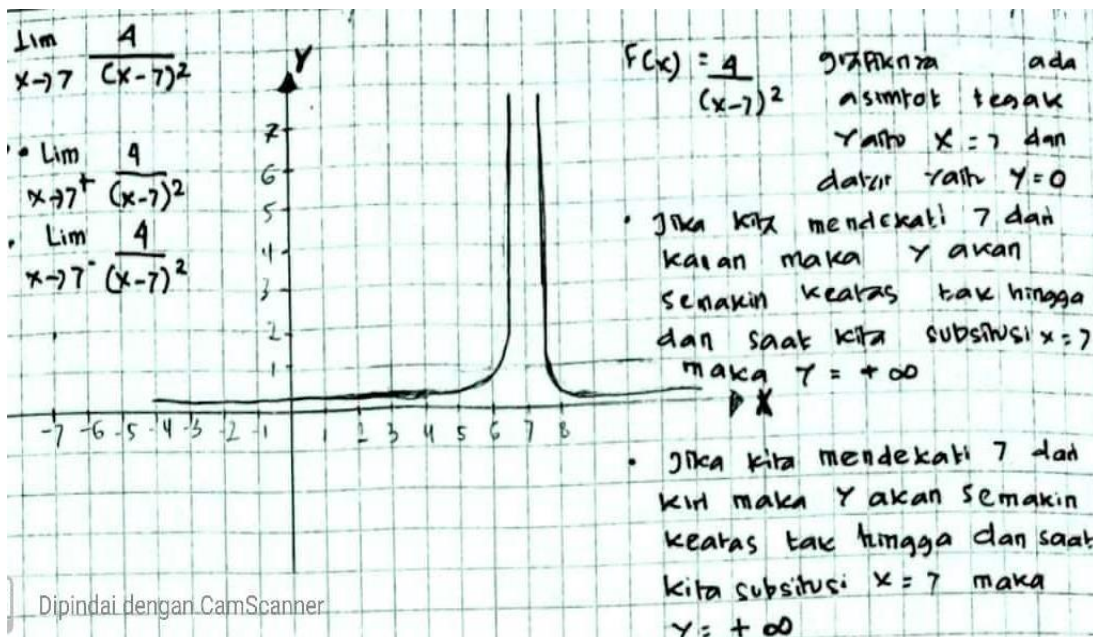 Lim 4
x→7 (x-7)2
• Lim 4
x→7+ (x-7)2
• Lim 4
x→7- (x-7)2
Y
7
6
5
4
3
2
1
-7 -6 -5 -4 -3 -2 -1 1 2 3 4 5 6 7 8
X
F(x) = 4 grafiknya ada
(x-7)2 asimtot tegak
yaitu x = 7 dan
datar yaitu y=0
• Jika kita mendekati 7 dari
kanan maka y akan
semakin keatas tak hingga
dan saat kita subsitusi x=7
maka y = +∞
• Jika kita mendekati 7 dari
kiri maka y akan semakin
keatas tak hingga dan saat
kita subsitusi x = 7 maka
y = +∞
Dipindai dengan CamScanner